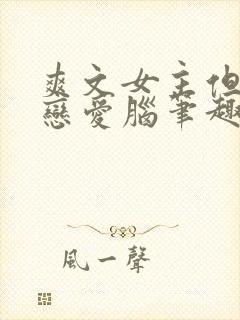 爽文女主但
戀愛腦筆趣
風一聲